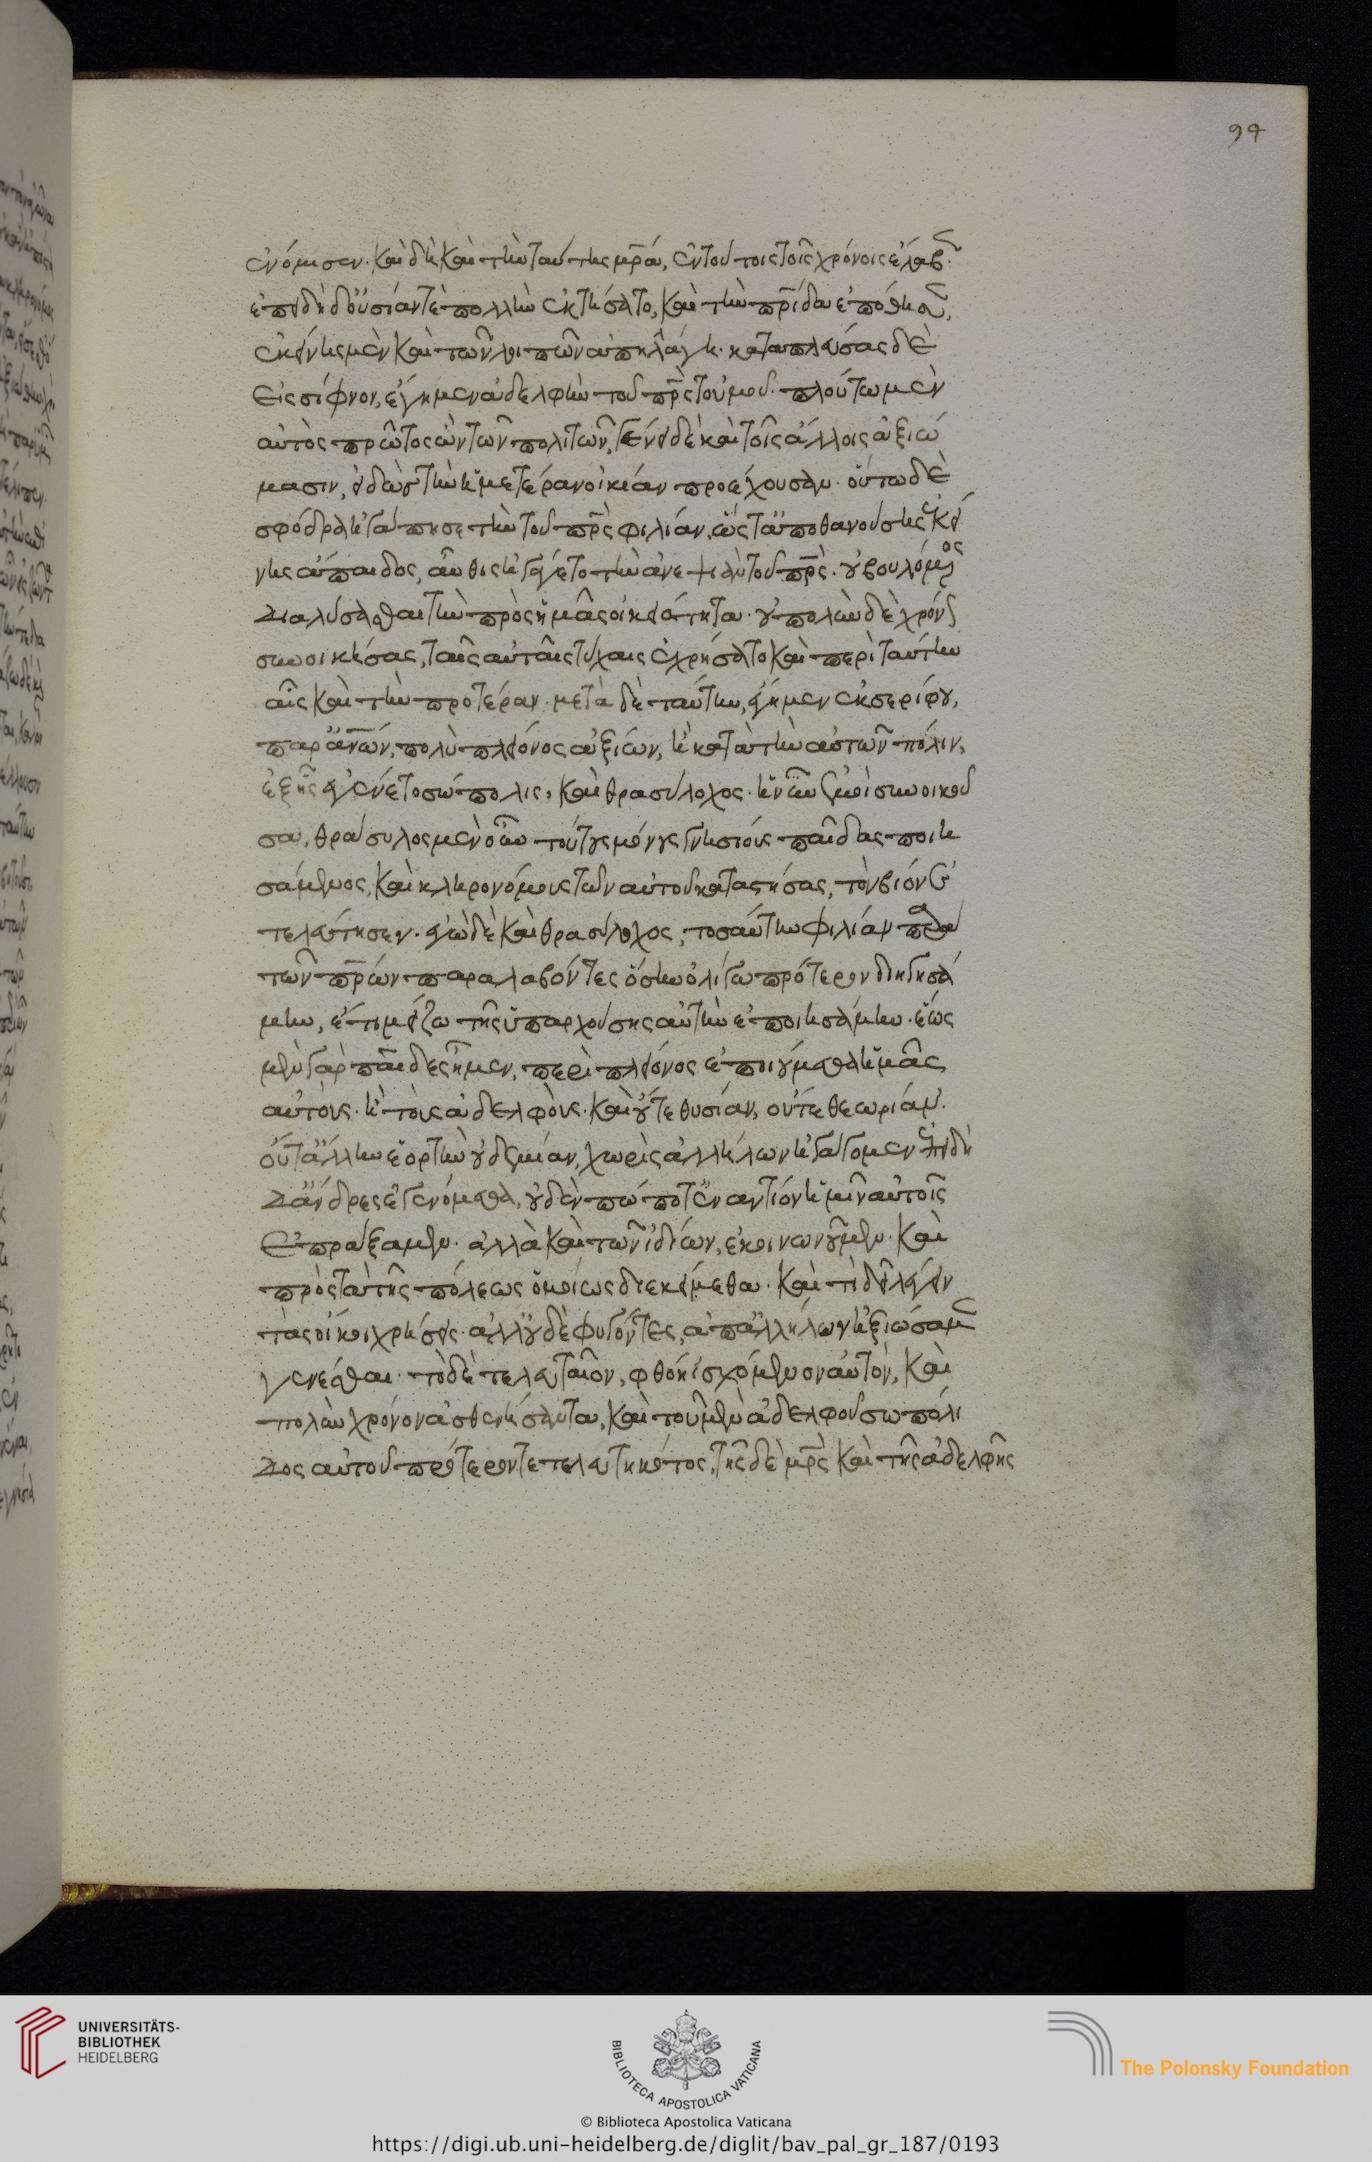 ἐνόμισεν. καὶ δὴ καὶ τὴν ταύτης μρ̅α, ἐν τούτοις τοῖς χρόνοις ἔλαβ.
ἐπειδὴ δ' οὐσίαν τὲ πολλὴν ἐκτήσατο, καὶ τὴν πρ̅ίδα ἐπόθησ,
ἐκείνης μὲν καὶ τῶν λοιπῶν ἀπηλλάγη. καταπλεύσας δὲ
εἰς σίφνον, ἔγημεν ἀδελφὴν τοῦ πρ̅ς τοὐμοῦ. πλούτω μὲν
αὐτὸς πρῶτος ὢν τῶν πολιτῶν, γένει δὲ καὶ τοῖς ἄλλοις ἀξιώ
μασιν, εἰδὼς τὴν ἡμετέραν οἰκίαν προέχουσαν. οὕτω δὲ
σφόδρα ἠγάπησε τὴν τοῦ πρ̅ς φιλίαν, ὥστ' ἀποθανούσης ἐκεί
νης ἄπαιδος, αὖθις ἠγάγετο τὴν ἀνεψιὰν τοῦ πρ̅ς. οὐ βουλόμενος
διαλύσασθαι τὴν πρὸς ἡμᾶς οἰκειότητα. οὐ πολὺν δὲ χρόνον
συνοικήσας, ταῖς αὐταῖς τύχαις ἐχρήσατο καὶ περὶ ταύτην
αἷς καὶ τὴν προτέραν. μετὰ δὲ ταύτην, ἔγημεν ἐκ σερίφου,
παρ' ἀν̅ων, πολὺ πλείονος ἀξίων, ἢ κατὰ τὴν αὐτῶν πόλιν,
ἐξ ἧς ἐγένετο σώπολις, καὶ θρασύλοχος. ἡ νῦν ἐμοὶ συνοικοῦ
σα, θράσυλος μὲν οὖν τούτους μόνους γνησίους παῖδας ποιη
σάμενος, καὶ κληρονόμους τῶν αὑτοῦ καταστήσας, τὸν βίον ἐ
τελεύτησεν. ἐγὼ δὲ καὶ θρασύλοχος, τοσαύτην φιλίαν παρὰ
τῶν πρ̅ων παραλαβόντες ὅσην ὀλίγω πρότερον διηγησά
μην, ἔτι μείζω τῆς ὑπαρχούσης αὐτὴν ἐποιησάμην. ἕως
μὲν γὰρ παῖδες ἦμεν, περὶ πλείονος ἐποιούμεθα ἡμᾶς
αὐτοὺς. ἢ τοὺς ἀδελφοὺς. καὶ οὔτε θυσίαν, οὔτε θεωρίαν.
οὔτ' ἄλλην ἑορτὴν οὐδεμίαν, χωρὶς ἀλλήλων ἤγομεν ἐπειδὴ
δ' ἄνδρες ἐγενόμεθα, οὐδὲν πώποτ' ἐναντίον ἡμῖν αὐτοῖς
ἐπράξαμεν. ἀλλὰ καὶ τῶν ἰδίων, ἐκοινωνοῦμεν. καὶ
πρὸς τὰ τῆς πόλεως ὁμοίως διεκείμεθα. καὶ τί δεῖ λέγειν
τὰς οἴκοι χρήσεις. ἀλλ' οὐδὲ φυγόντες, ἀπ' ἀλλήλων ἠξιώσαμ
γενέσθαι. τὸ δὲ τελευταῖον, φθόῃ ἰσχόμενον αὐτὸν, καὶ
πολὺν χρόνον ἀσθενήσαντα, καὶ τοῦ μὲν ἀδελφοῦ σωπόλι
δος αὐτοῦ πρότερον τετελευτηκότος, τῆς δὲ μρ̅ς καὶ τῆς ἀδελφῆς
94
UNIVERSITÄTS-
BIBLIOTHEK
HEIDELBERG
BIBLIOTECA APOSTOLICA VATICANA
The Polonsky Foundation
© Biblioteca Apostolica Vaticana
https://digi.ub.uni-heidelberg.de/diglit/bav_pal_gr_187/0193